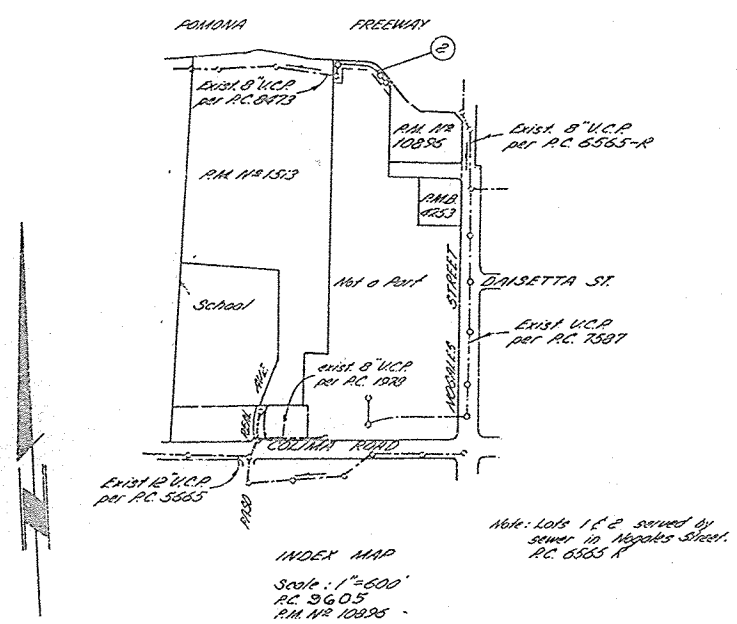 POMONA FREEWAY
2
Exist. 8" V.C.P.
per P.C. 8473
P.M. Nº
10896
Exist. 8" V.C.P.
per P.C. 6565-R
P.M. Nº 1513
P.M.B.
4253
Not a Part
NOGALES STREET
DAISETTA ST.
School
Exist V.C.P.
per P.C. 7587
exist. 8" V.C.P.
per P.C. 1979
AVE.
COLIMA ROAD
Exist 12" V.C.P.
per P.C. 5665
Note: Lots 1 & 2 served by
sewer in Nogales Street.
P.C. 6565 R
INDEX MAP
Scale: 1"=600'
P.C. 9605
P.M. Nº 10896